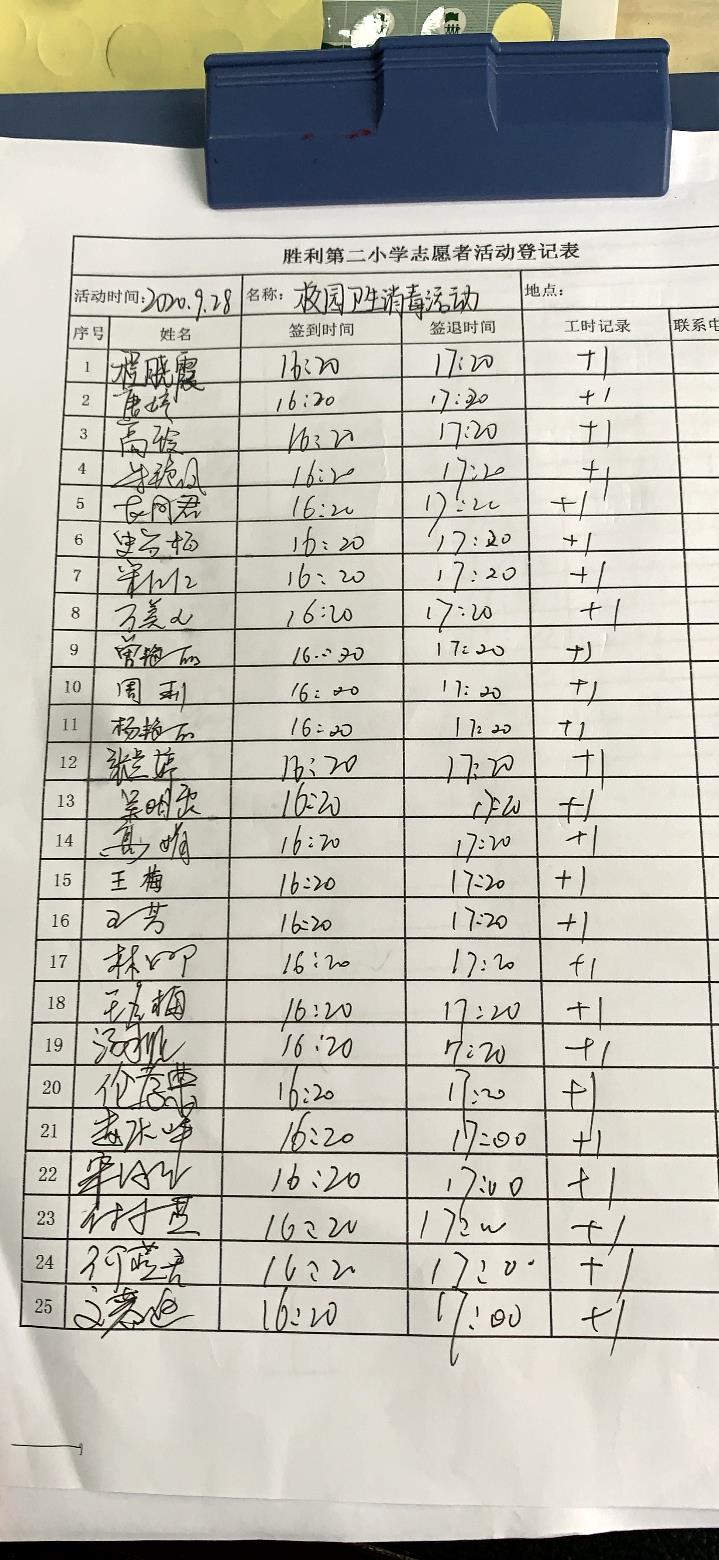 胜利第二小学志愿者活动登记表
活动时间:2020.9.28 名称: 校园卫生消毒活动 地点:
序号 姓名 签到时间 签退时间 工时记录 联系电
1 程晓霞 16:20 17:20 +1
2 16:20 17:20 +1
3 16:20 17:20 +1
4 16:20 17:20 +1
5 16:20 17:20 +1
6 16:20 17:20 +1
7 16:20 17:20 +1
8 16:20 17:20 +1
9 曾艳丽 16:20 17:20 +1
10 周利 16:20 17:20 +1
11 杨艳丽 16:20 17:20 +1
12 16:20 17:20 +1
13 16:20 17:20 +1
14 16:20 17:20 +1
15 王梅 16:20 17:20 +1
16 王芳 16:20 17:20 +1
17 16:20 17:20 +1
18 16:20 17:20 +1
19 16:20 17:20 +1
20 16:20 17:20 +1
21 16:20 17:00 +1
22 16:20 17:00 +1
23 16:20 +1
24 16:20 17:00 +1
25 16:20 17:00 +1